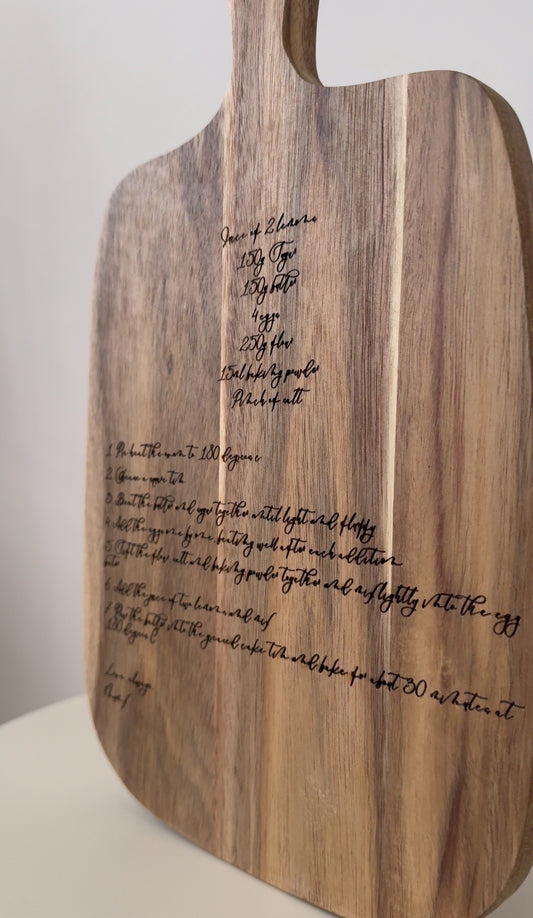 Juce of 2 lemons
150g
150g butter
4 eggs
250g flour
15ml baking powder
Pinch of salt
1. Preheat the oven to 180 degrees c
2. Grease a tin
3. Beat the butter and sugar together until light and fluffy
4. Add the eggs one by one, beating well after each addition
5. Sift the flour salt and baking powder together and mix lightly into the egg
6. Add the juice of two lemons and mix
7. Pour the batter into the greased cake tin and bake for about 30 minutes at
180 degrees C
Love always